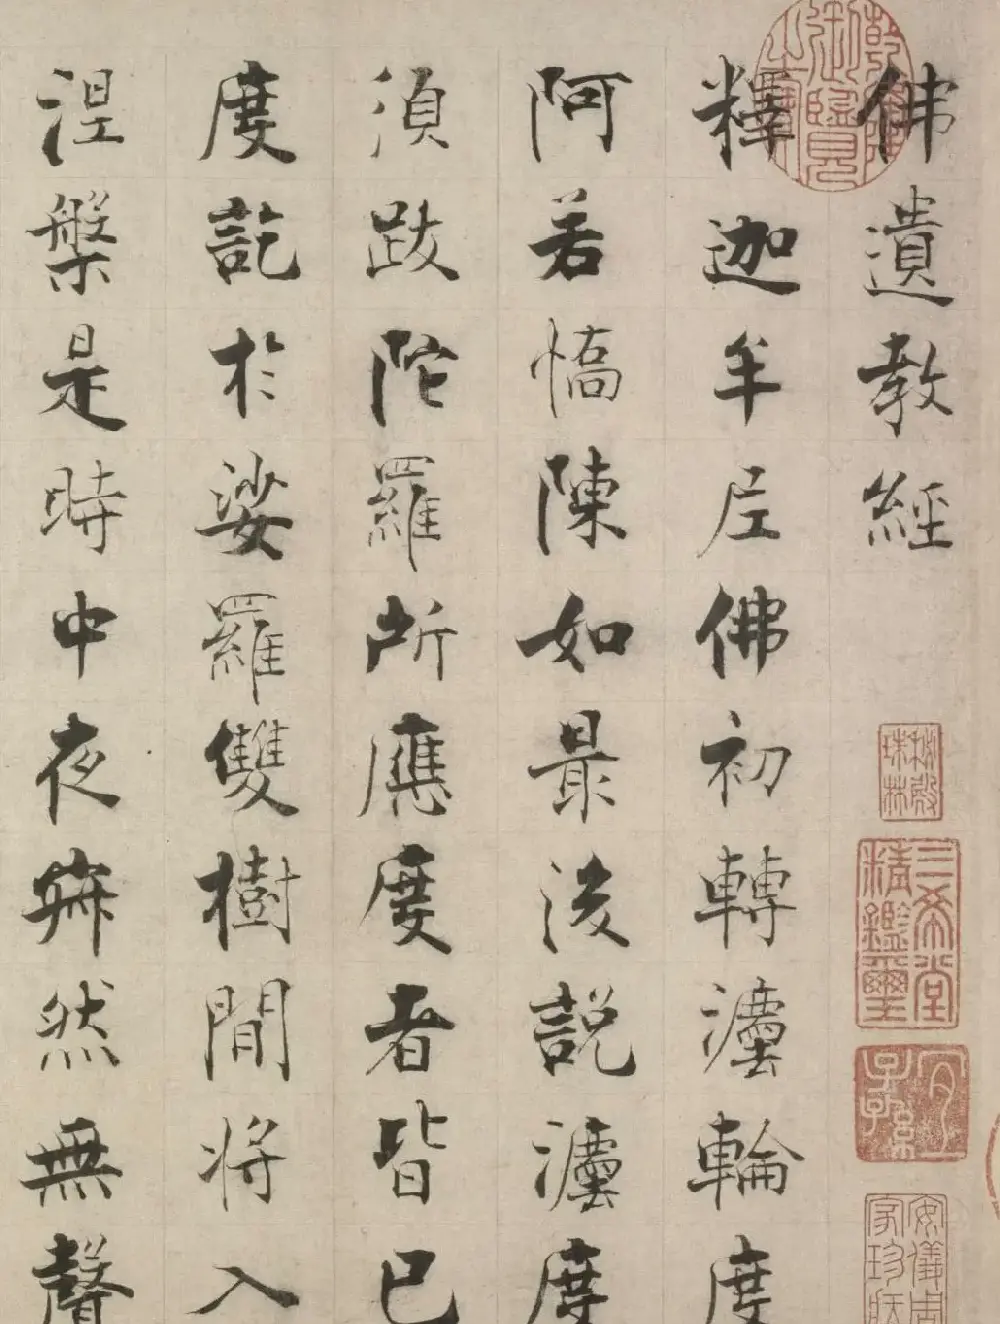 佛遺教經
釋迦牟尼佛初轉灋輪度
阿若憍陳如最後說灋度
須跋陀羅所應度者皆已
度訖於娑羅雙樹間將入
涅槃是時中夜寂然無聲
乾隆御覽之寶
秘殿珠林
三希堂精鑑璽
宜子孫
安儀周家珍藏